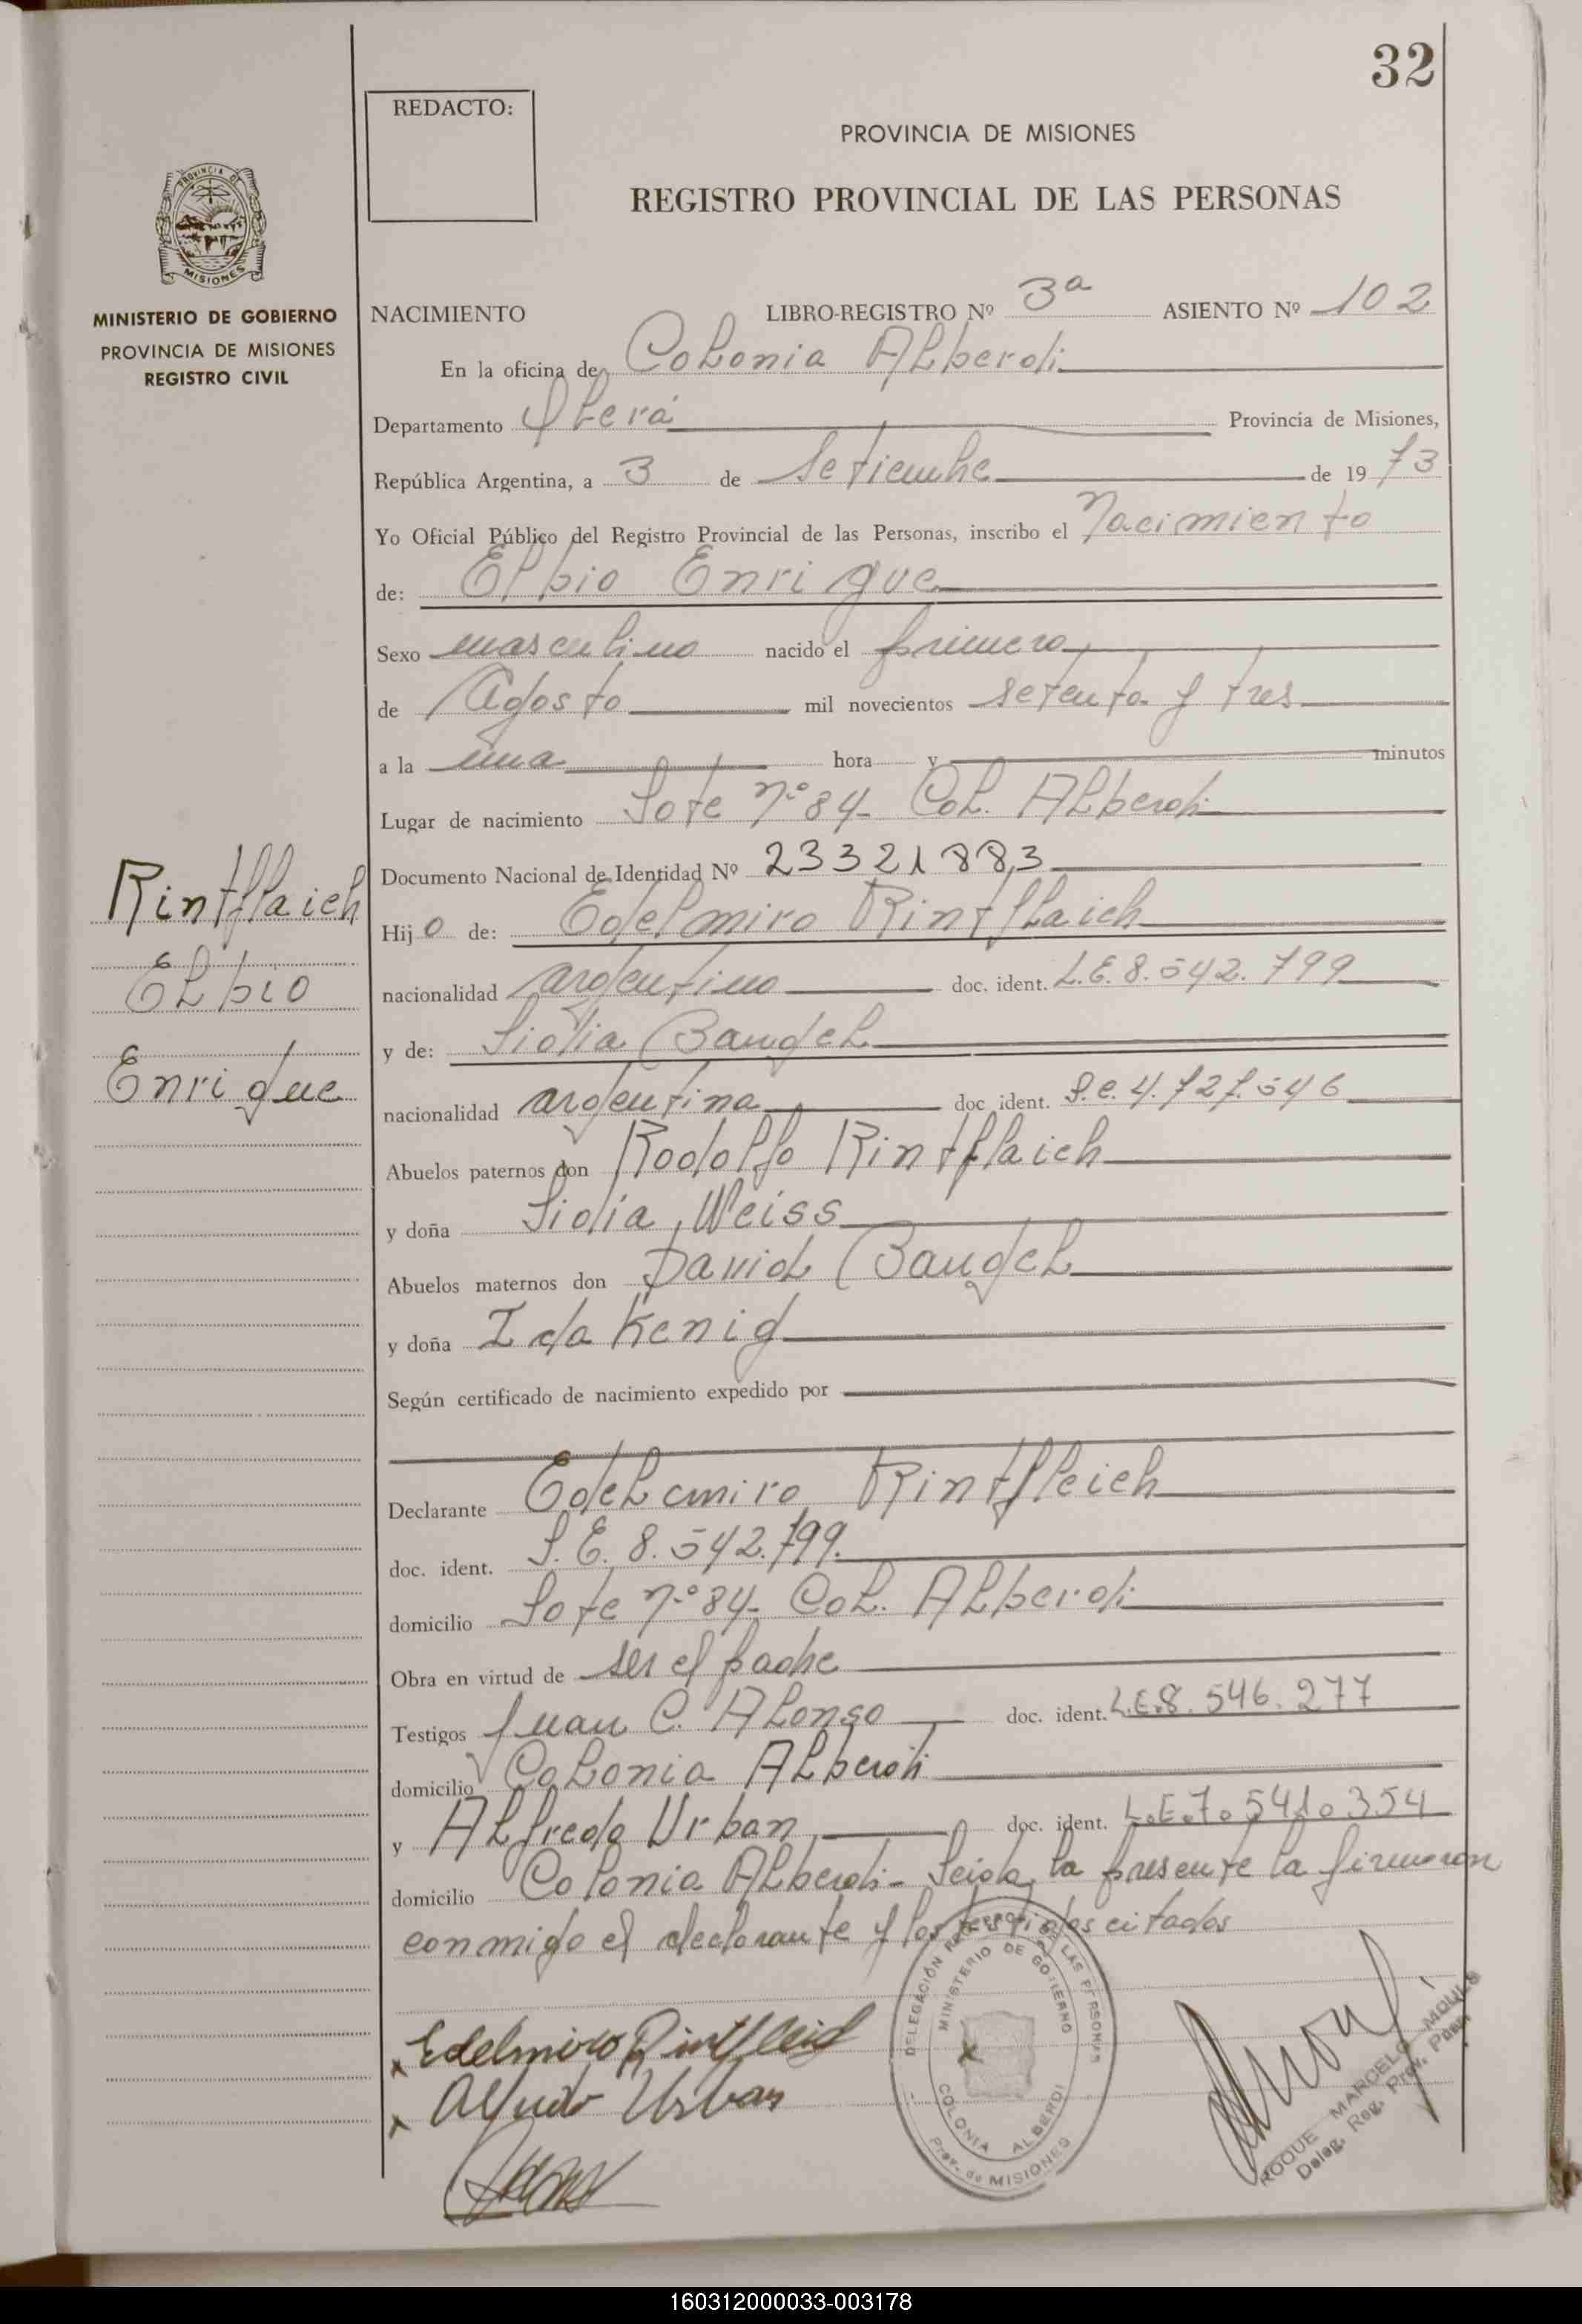 32
REDACTO:
PROVINCIA DE MISIONES
REGISTRO PROVINCIAL DE LAS PERSONAS
PROVINCIA DE
MISIONES
MINISTERIO DE GOBIERNO
PROVINCIA DE MISIONES
REGISTRO CIVIL
NACIMIENTO LIBRO-REGISTRO Nº 3ª ASIENTO Nº 102
En la oficina de Colonia Alberdi
Departamento Oberá Provincia de Misiones,
República Argentina, a 3 de Setiembre de 19 73
Yo Oficial Público del Registro Provincial de las Personas, inscribo el Nacimiento
de: Elbio Enrique
Sexo masculino nacido el primero
de Agosto mil novecientos setenta y tres
a la una hora y minutos
Lugar de nacimiento Lote nº 84- Col. Alberdi
Documento Nacional de Identidad Nº 23321883
Rintflaich
Hijo de: Edelmiro Rintflaich
Elbio
nacionalidad argentino doc. ident. L.E. 8.542.799
y de: Lidia Bangel
Enrique
nacionalidad argentina doc. ident. L.C. 4.727.546
Abuelos paternos don Rodolfo Rintflaich
y doña Lidia Weiss
Abuelos maternos don David Bangel
y doña Ida Kenig
Según certificado de nacimiento expedido por
Declarante Edelemiro Rintfleich
doc. ident. L.E. 8.542.799.
domicilio Lote nº 84- Col. Alberdi
Obra en virtud de ser el padre
Testigos Juan C. Alonso doc. ident. L.E.8.546.277
domicilio Colonia Alberdi
y Alfredo Urban doc. ident. L.E.7.541.354
domicilio Colonia Alberdi- Leida la presente la firmaron
conmigo el declarante y los testigos citados
Edelmiro Rintfleich
Alfredo Urban
DELEGACIÓN REG. PROV. DE LAS PERSONAS
MINISTERIO DE GOBIERNO
COLONIA ALBERDI
Prov. de MISIONES
ROQUE MARCELO
Deleg. Reg. Prov. Pers.
160312000033-003178